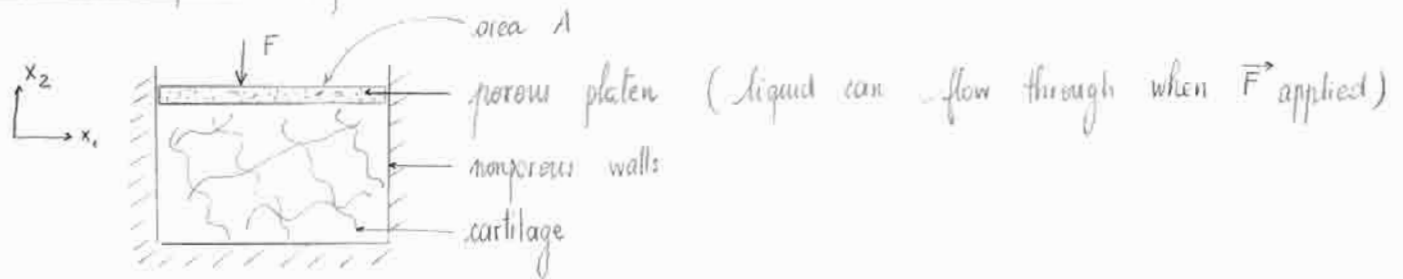 area A
F
x₂
porous platen (liquid can flow through when F⃗ applied)
x₁
nonporous walls
cartilage